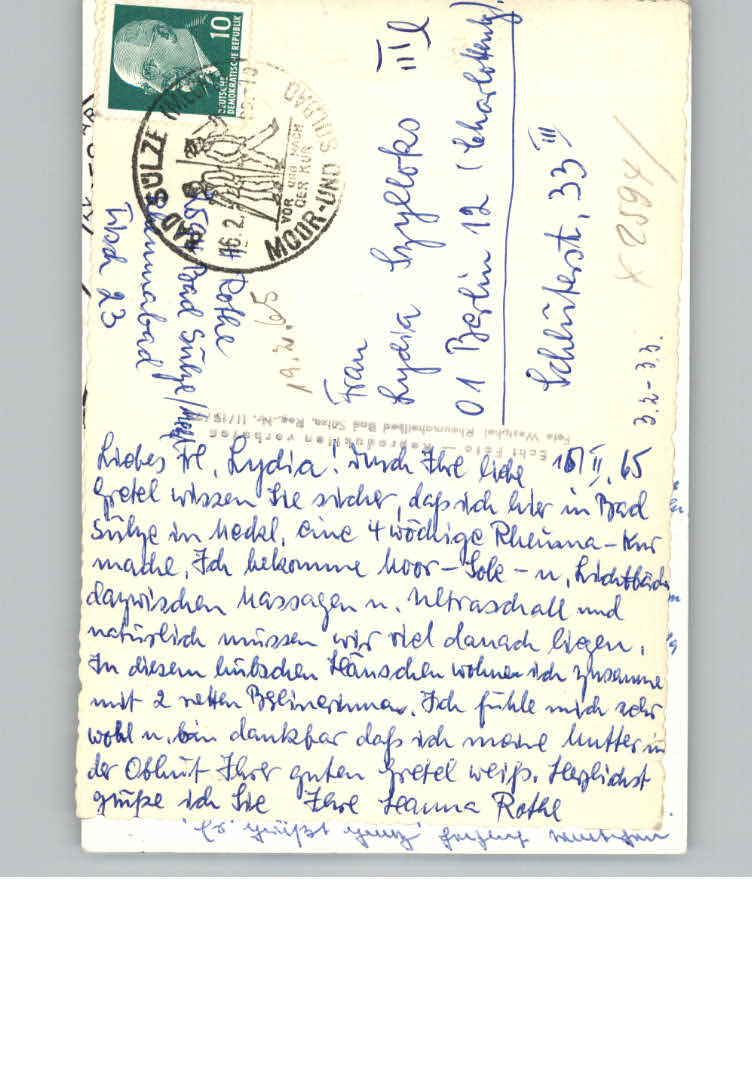 10
DEUTSCHE
DEMOKRATISCHE REPUBLIK
BAD SÜLZE
MOOR-UND SOLBAD
VOR UND NACH
DER KUR
16.2.
Rothe
Bad Sülze/Meckl
Tisch 23
19.2.65
Frau
Lydia
III l
01 Berlin 12 (Charlottenbg).
Schlüterstr. 33 III
x 2594/
3.2-3.3.
Echt Foto — Reproduktion verboten
Foto Westphal, Rheumaheilbad Bad Sülze, Reg.-Nr. II/19
Liebes Frl. Lydia! Durch Ihre liebe 16/II.65
Gretel wissen Sie sicher, daß ich hier in Bad
Sülze in Meckl. eine 4 wöchige Rheuma-Kur
mache. Ich bekomme Moor-Sole- u. Lichtbäder
dazwischen Massagen u. Ultraschall und
natürlich müssen wir viel danach liegen.
In diesem hübschen Häuschen wohne ich zusammen
mit 2 netten Berlinerinnen. Ich fühle mich sehr
wohl u. bin dankbar daß ich meine Mutter in
der Obhut Ihrer guten Gretel weiß. Herzlichst
grüße ich Sie Ihre Hanna Rothe